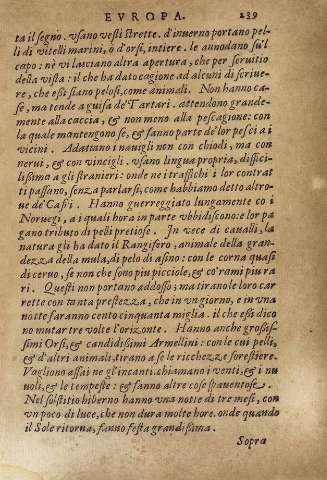 EVROPA. 239
ta il segno. vsano vesti strette. d'inuerno portano pel-
li di vitelli marini, ò d'orsi, intiere. le annodano sù'l
capo: nè vi lasciano altra apertura, che per seruitio
della vista: il che ha dato cagione ad alcuni di scriue-
re, che essi siano pelosi, come animali. Non hanno ca-
se, ma tende a guisa de'Tartari. attendono grande-
mente alla caccia, & non meno alla pescagione: con
la quale mantengono se, & fanno parte de'lor pesci a i
vicini. Adattano i nauigli non con chiodi, ma con
nerui, & con vincigli. vsano lingua propria, diffici-
lissima a gli stranieri: onde ne i traffichi i lor contrat
ti passano, senza parlarsi, come habbiamo detto altro-
ue de'Casri. Hanno guerreggiato lungamente co i
Noruegi, a i quali hora in parte vbbidiscono: e lor pa
gano tributo di pelli pretiose. In vece di caualli, la
natura gli ha dato il Rangifero, animale della gran-
dezza della mula, di pelo di asino: con le corna quasi
di ceruo, se non che sono piu picciole, & co'rami piu ra
ri. Questi non portano addosso; ma tirano le loro car
rette con tanta prestezza, che in vn giorno, e in vna
notte faranno cento cinquanta miglia. il che essi dico
no mutar tre volte l'orizonte. Hanno anche grossis-
simi Orsi, & candidissimi Armellini: con le cui pelli,
& d'altri animali, tirano a se le ricchezze forestiere.
Vagliono assai ne gl'incanti. chiamano i venti, & i nu
uoli, & le tempeste: & fanno altre cose spauentose.
Nel solstitio hiberno hanno vna notte di tre mesi, con
vn poco di luce, che non dura molte hore. onde quando
il Sole ritorna, fanno festa grandissima.
Sopra